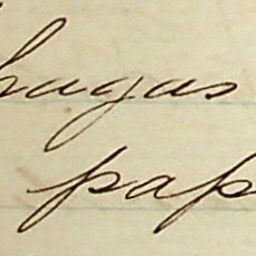 hagas
pap